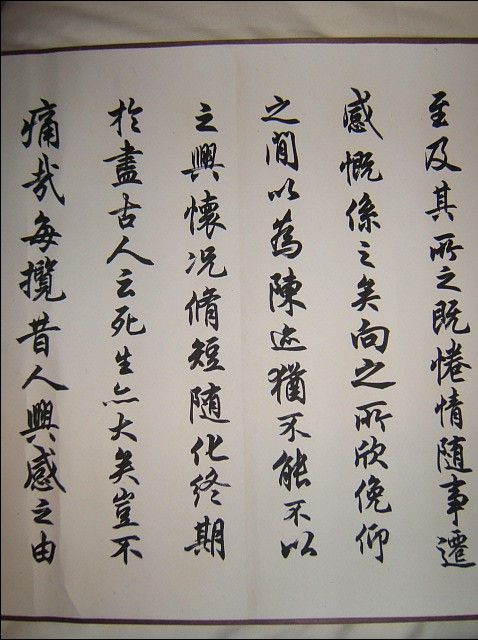 至及其所之既惓情随事遷
感慨係之矣向之所欣俛仰
之閒以為陳迹猶不能不以
之興懷况脩短随化終期
於盡古人云死生亦大矣豈不
痛哉每攬昔人興感之由